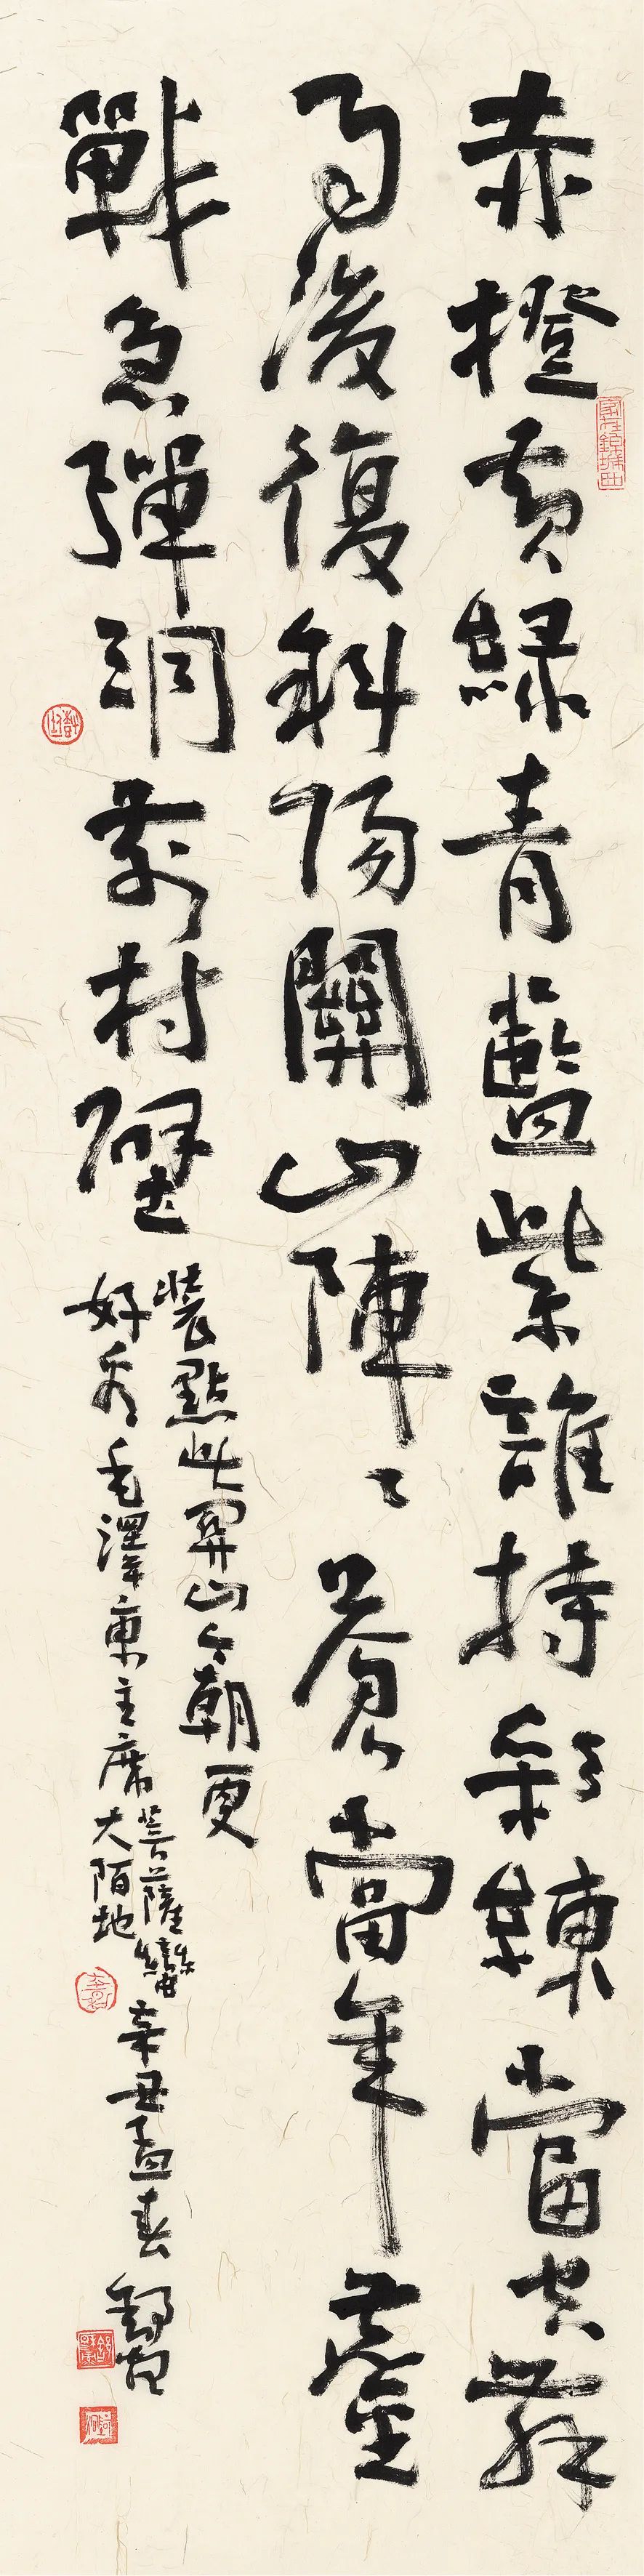 赤橙黃綠青藍紫誰持彩練當空舞
雨後復斜陽關山陣々蒼當年鏖
戰急彈洞前村壁
裝點此關山今朝更
好看毛澤東主席
菩薩蠻
大陌地
辛丑孟春